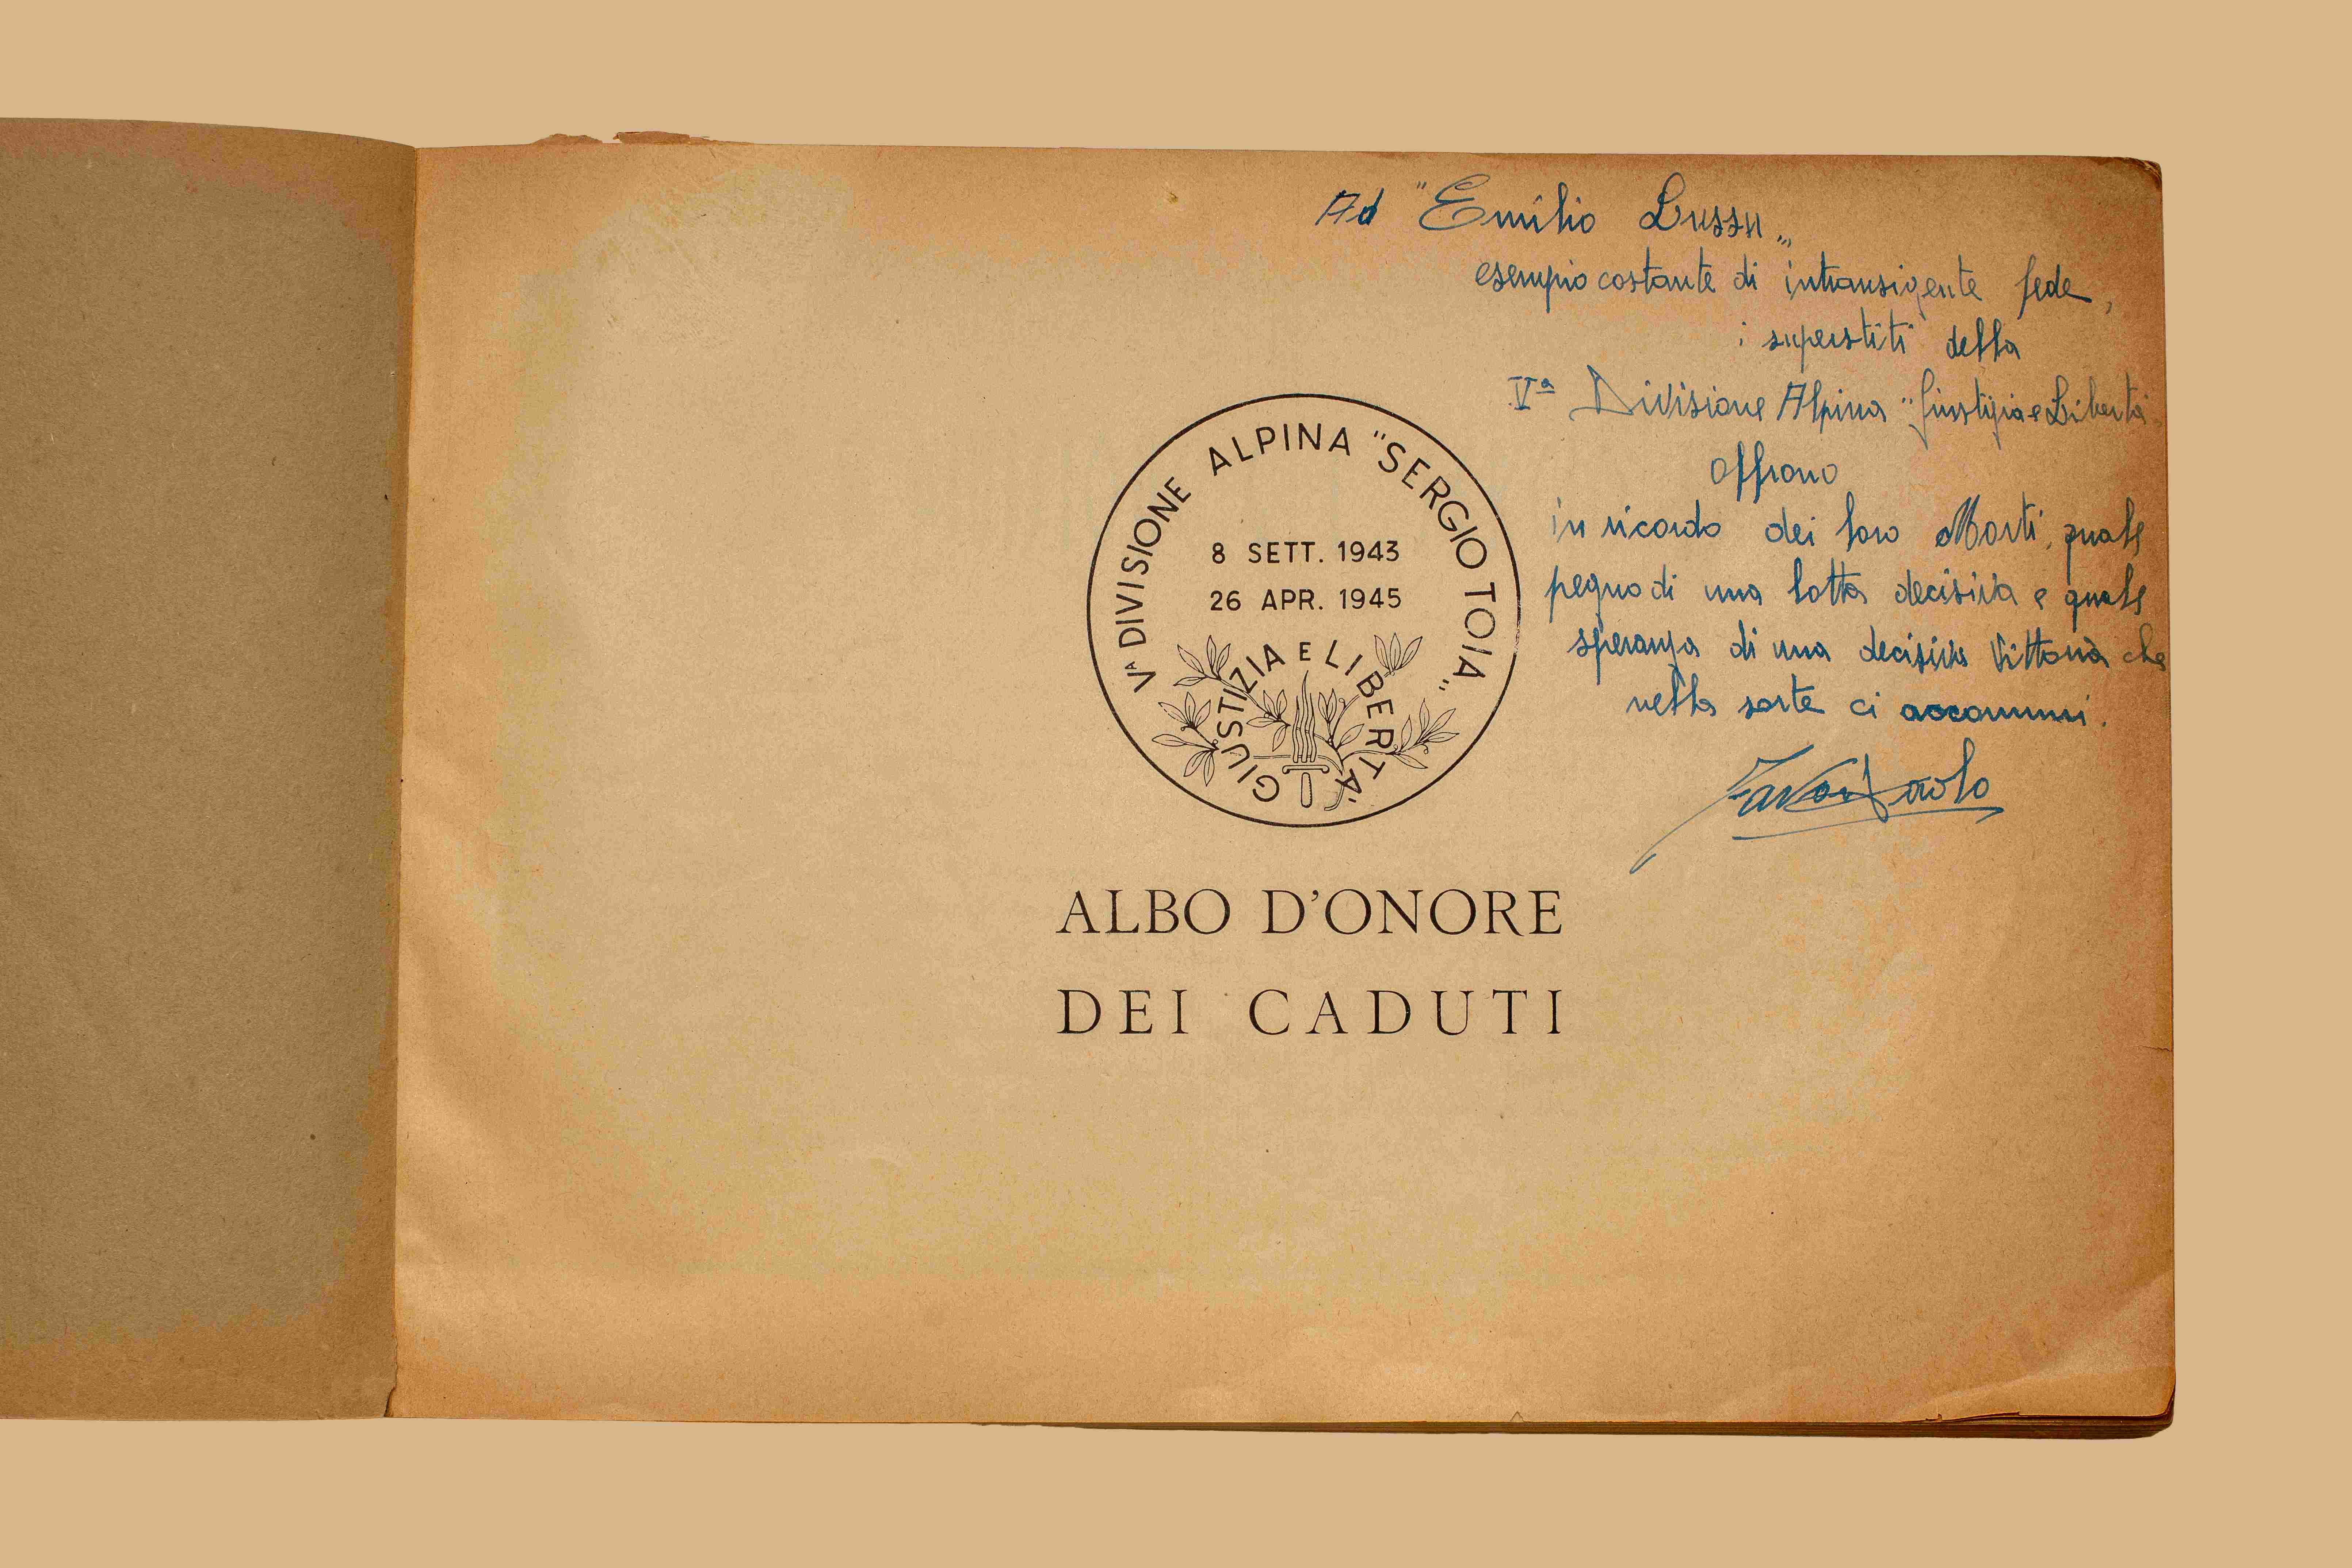 Ad "Emilio Lussu„
esempio costante di intransigente fede,
i superstiti della
Vª Divisione Alpina "Giustizia e Libertà„
offrono
in ricordo dei loro Morti, quale
pegno di una lotta decisiva e quale
speranza di una decisiva Vittoria che
nella sorte ci accomuni.
Vᴬ DIVISIONE ALPINA "SERGIO TOIA„
8 SETT. 1943
26 APR. 1945
GIUSTIZIA E LIBERTA'
ALBO D'ONORE
DEI CADUTI